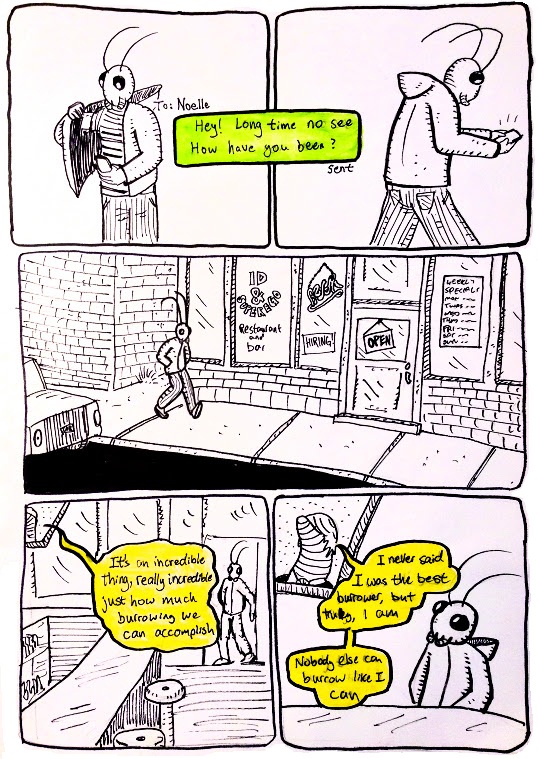 To: Noelle
Hey! Long time no see
How have you been?
sent
ID
&
SUPEREGO
Restaurant
and
bar
BEER
HIRING!
OPEN
WEEKLY
SPECIALS
MON
TUES
WED
THURS
FRI
SAT
SUN
It's an incredible
thing, really incredible
just how much
burrowing we
can accomplish
I never said
I was the best
burrower, but
truly, I am
Nobody else can
burrow like I
can